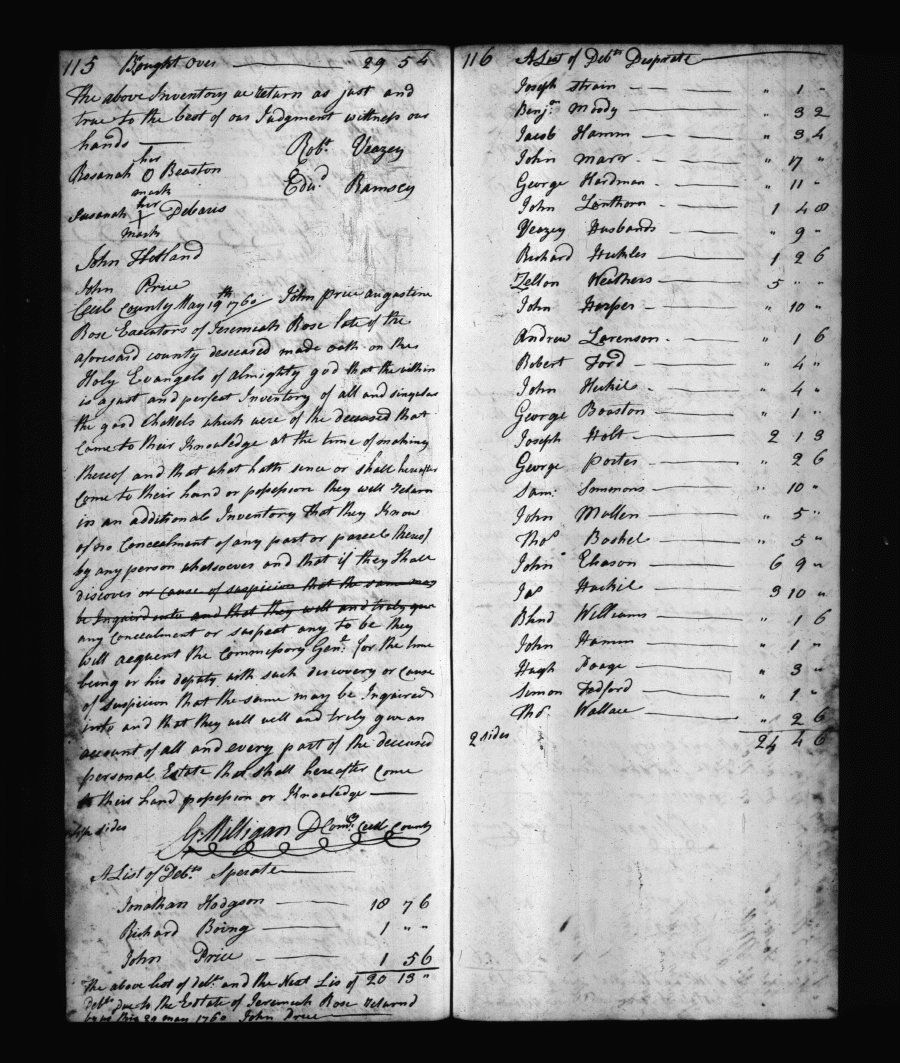 115 Bought Over 29 5 4
The above Inventory we return as just and
true to the best of our Judgment witness our
hands
Robt Veazey
Rosanah her O mark Beaston
Edwd Ramsey
Susanah her mark Debaris
John Hetland
John Price
Cecil County May 19th 1760 John Price augustine
Rose Executors of Jeremiah Rose late of the
aforesaid county deceased made oath on the
Holy Evangels of almighty god that the within
is a just and perfect Inventory of all and singular
the good Chattels which were of the deceased that
came to their Knowledge at the time of making
thereof and that what hath since or shall hereafter
come to their hand or possession they will return
in an additional Inventory that they Know
of no Concealment of any part or parcel thereof
by any person whatsoever and that if they Shall
discover or cause of suspicion that the same may
be Inquired into and that they will and truly give
any concealment or suspect any to be they
will aequent the Commissory Genl for the time
being or his deputy with such discovery or cause
of suspicion that the same may be Inquired
into and that they will well and truly give an
account of all and every part of the deceased
personal Estate that shall hereafter come
to their hand possession or Knowledge
sides
G Milligan D Comy Cecil County
A List of Debts Sperate
Jonathan Hodgson 18 7 6
Richard Boing 1 " "
John Price 1 5 6
The above list of debts and the Next Lis of 20 13 "
Debts due to the Estate of Jeremiah Rose returnd
by us this 29 may 1760 John Price
116 A List of Debts Desperate
Joseph Strain " 1 "
Benjn Moody " 3 2
Jacob Hamm " 3 4
John Marr " 17 "
George Hardman " 11 "
John Lenthorn 1 4 8
Veazey Husbands " 9 "
Richard Hukles 1 2 6
Zellon Weathers 5 " "
John Harper " 10 "
Andrew Lorenson " 1 6
Robert Ford " 4 "
John Hukil " 4 "
George Boaston " 1 "
Joseph Holt 2 1 3
George Porter " 2 6
Sam: Simmons " 10 "
John Mullen " 5 "
Thos Bashel " 5 "
John Eliason 6 9 "
Jas Huckil 3 10 "
Bland Williams " 1 6
John Hamm " 1 "
Hugh Poage " 3 "
Simon Fadford " 1 "
Thos. Wallace " 2 6
2 sides 24 4 6